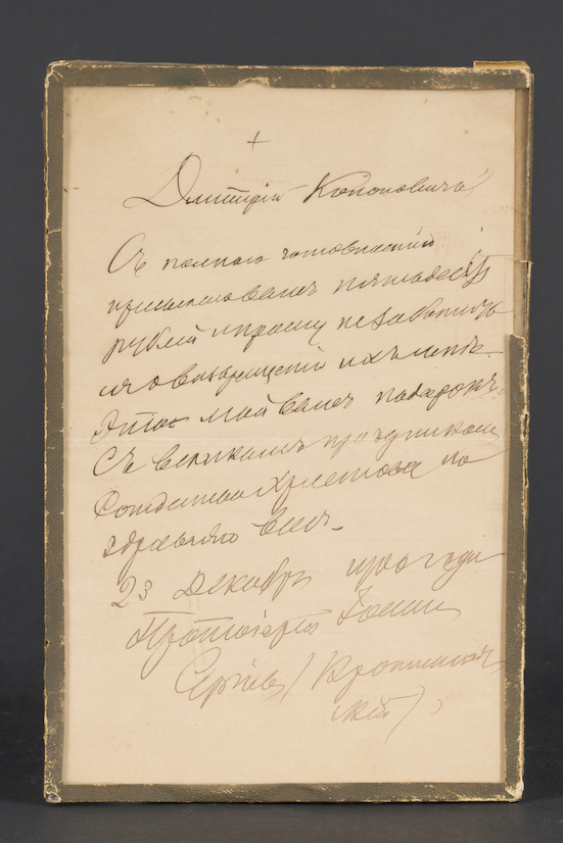 +
Дмитрій Кононовичъ!
Съ полною готовностью
присылаю вамъ пятьдесятъ
рублей и прошу не заботить
ся о возвращеніи ихъ мнѣ.
Это мой вамъ подарокъ.
Съ великимъ праздникомъ
Рождества Христова по
здравляю васъ.
23 Декабря 1900 года
Протоіерей Іоаннъ
Сергіев (Кронштадт
скій).